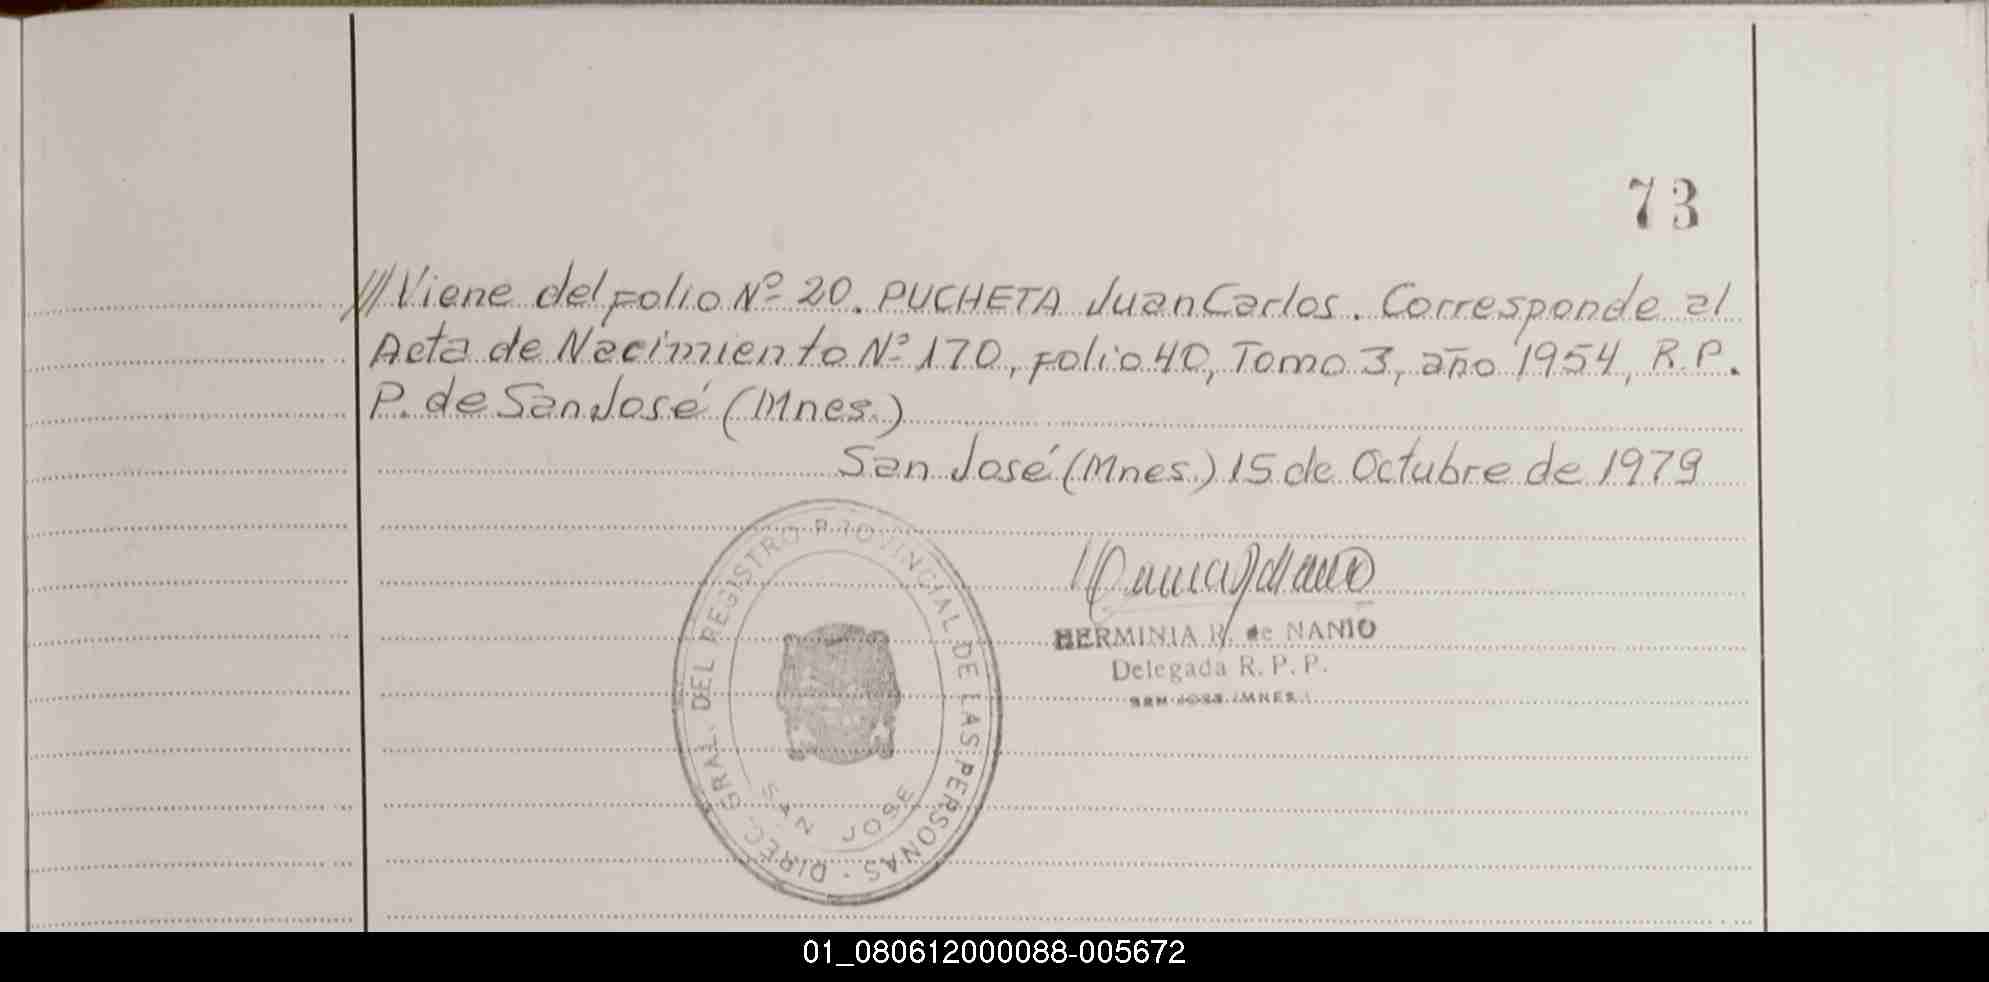 73
///Viene del folio Nº 20. PUCHETA Juan Carlos. Corresponde al
Acta de Nacimiento Nº 170, folio 40, Tomo 3, año 1954, R.P.
P. de San José (Mnes.)
San José (Mnes.) 15 de Octubre de 1979
DIREC. GRAL. DEL REGISTRO PROVINCIAL DE LAS PERSONAS
SAN JOSE
HERMINIA R. de NANIO
Delegada R. P. P.
SAN JOSE (MNES.)
01_080612000088-005672